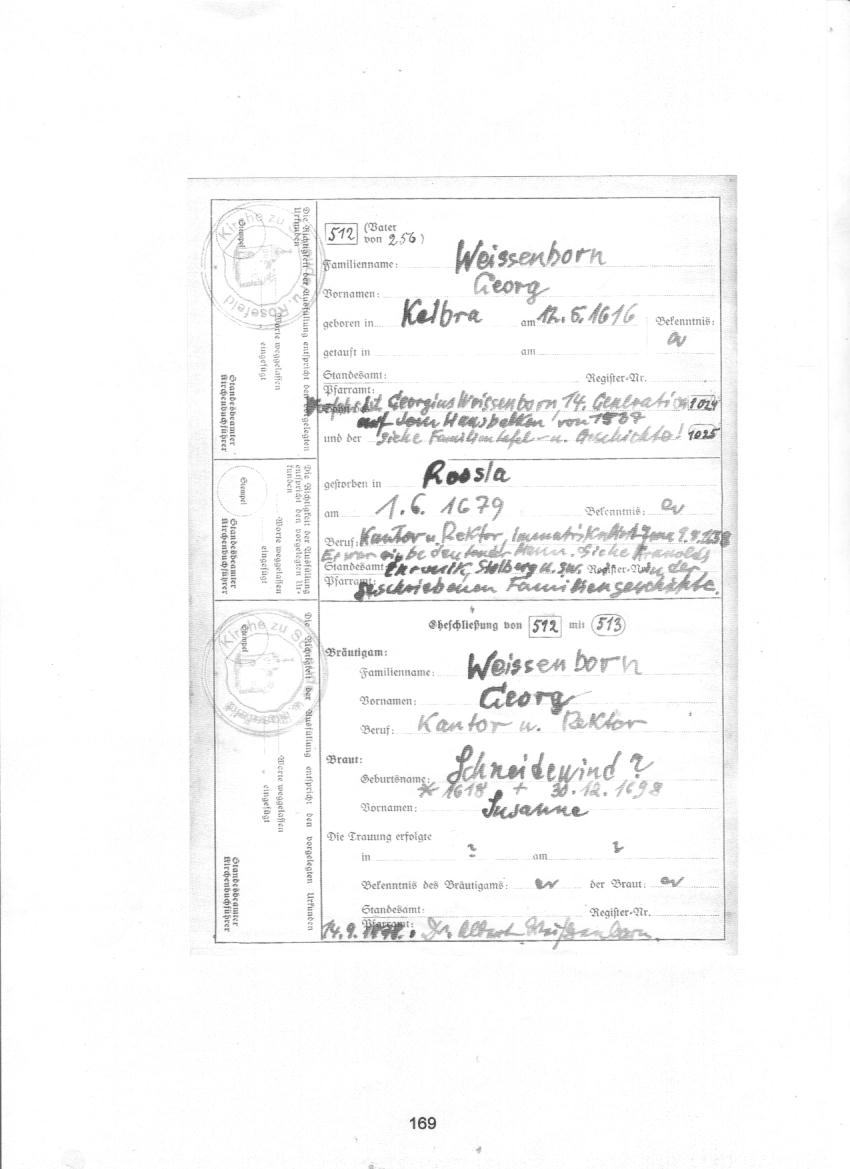 512 (Vater
von 256)
Familienname: Weissenborn
Vornamen: Georg
geboren in Kelbra am 12.5.1616 Bekenntnis:
ev
getauft in am
Standesamt: Register-Nr.
Pfarramt:
Georgius Weissenborn 14. Generation 1024
auf dem von 1587
und der Siehe Familientafel u. Geschichte! 1025
gestorben in Rossla
am 1.6.1679 Bekenntnis: ev
Beruf: Kantor u. Rektor,
Er war ein bedeutender Mann. Siehe Arnolds
Standesamt: Chronik, Stolberg u.sw. Register-Nr. in der
Pfarramt: geschriebenen Familiengeschichte.
Eheschließung von 512 mit 513
Bräutigam:
Familienname: Weissenborn
Vornamen: Georg
Beruf: Kantor u. Rektor
Braut:
Geburtsname: Schneidewind ?
* 1618 + 30.12.1698
Vornamen: Susanne
Die Trauung erfolgte
in ? am ?
Bekenntnis des Bräutigams: ev der Braut: ev
Standesamt: Register-Nr.
Pfarramt:
14.9. Dr. Albert Weißenborn.
Die Richtigkeit der Ausfüllung entspricht den vorgelegten Urkunden
Worte weggelassen
eingefügt
Stempel
Standesbeamter
Kirchenbuchführer
Kirche zu
u. Rosefeld
Die Richtigkeit der Ausfüllung entspricht den vorgelegten Urkunden
Worte weggelassen
eingefügt
Stempel
Standesbeamter
Kirchenbuchführer
Die Richtigkeit der Ausfüllung entspricht den vorgelegten Urkunden
Worte weggelassen
eingefügt
Stempel
Standesbeamter
Kirchenbuchführer
Kirche zu
169